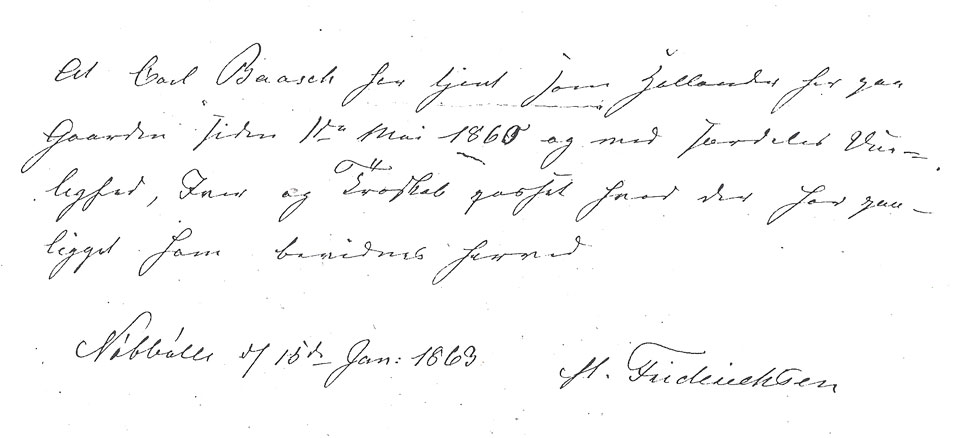 At Carl Baasch har tjent som Hollænder her paa
Gaarden siden 1ste Mai 1860 og med særdeles Vin-
lighed, Iver og Troskab passet hvad der har paa-
ligget ham bevidnes herved
Nøbbølle d/ 15de Jan: 1863
Friderichsen